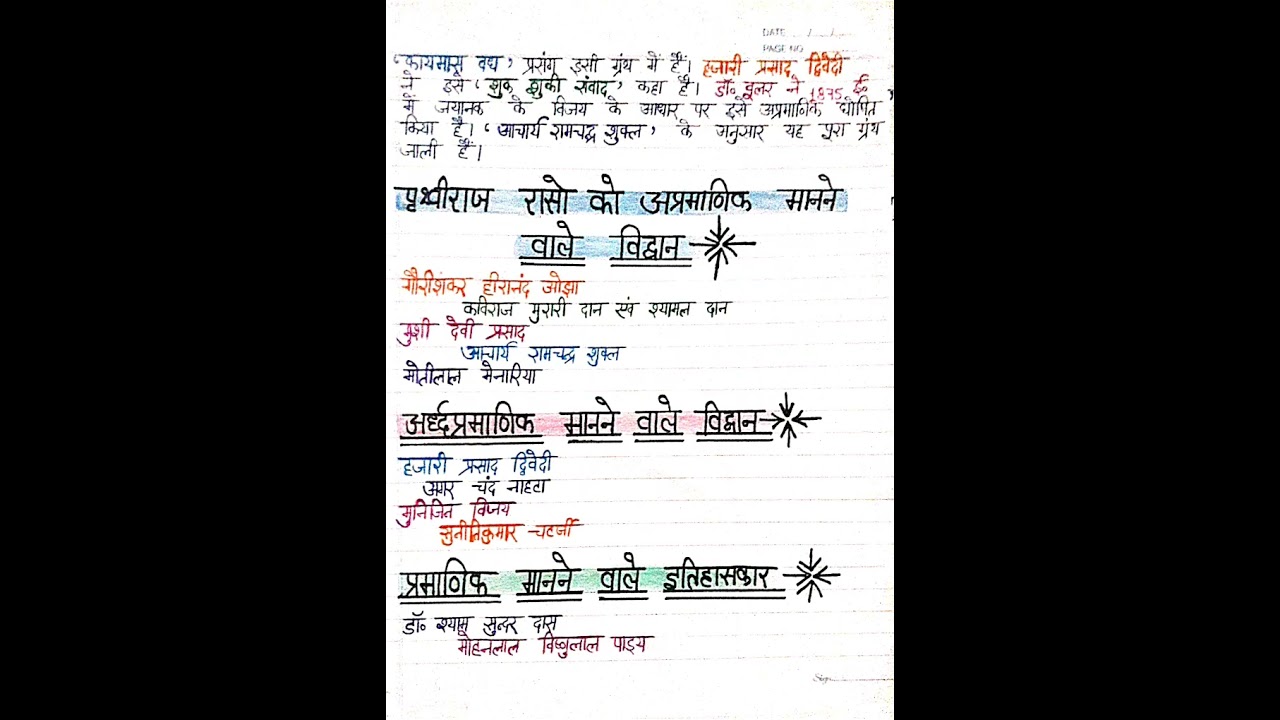 DATE / /
PAGE NO
'कायमास वध' प्रसंग इसी ग्रंथ में है। हजारी प्रसाद द्विवेदी
ने इसे 'शुक शुकी संवाद' कहा है। डॉ॰ वूलर ने 1875 ई॰
में जयानक के विजय के आधार पर इसे अप्रमाणिक घोषित
किया है। 'आचार्य रामचन्द्र शुक्ल' के अनुसार यह पुरा ग्रंथ
जाली हैं।
पृथ्वीराज रासो को अप्रमाणिक मानने
वाले विद्वान
गौरीशंकर हीरानंद ओझा
कविराज मुरारी दान एवं श्यामल दान
मुंशी देवी प्रसाद
आचार्य रामचन्द्र शुक्ल
मोतीलाल मेनारिया
अर्ध्दप्रमाणिक मानने वाले विद्वान
हजारी प्रसाद द्विवेदी
अगर चंद नाहटा
मुनिजित विजय
सुनीतिकुमार चटर्जी
प्रमाणिक मानने वाले इतिहासकार
डॉ॰ श्याम सुन्दर दास
मोहनलाल विष्णुलाल पाड्य